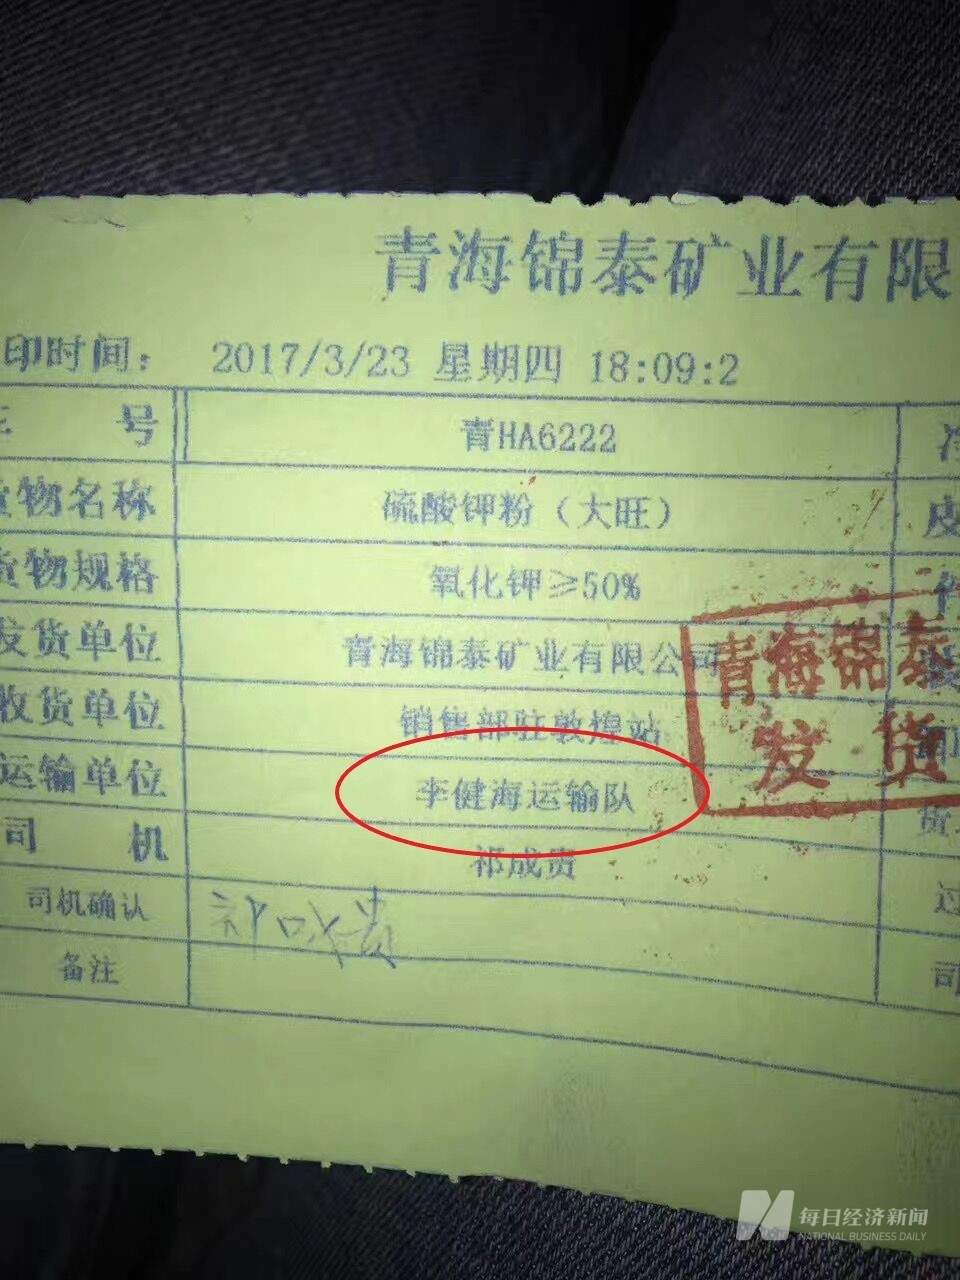 青海锦泰矿业有限
印时间： 2017/3/23 星期四 18:09:2
号 青HA6222
物名称 硫酸钾粉（大旺） 皮
货物规格 氧化钾≥50%
发货单位 青海锦泰矿业有限公司
收货单位 销售部驻敦煌站
运输单位 李健海运输队
司 机 祁成贵 过
司机确认 祁成贵
备注 司
青海锦泰
发货
每日经济新闻
NATIONAL BUSINESS DAILY